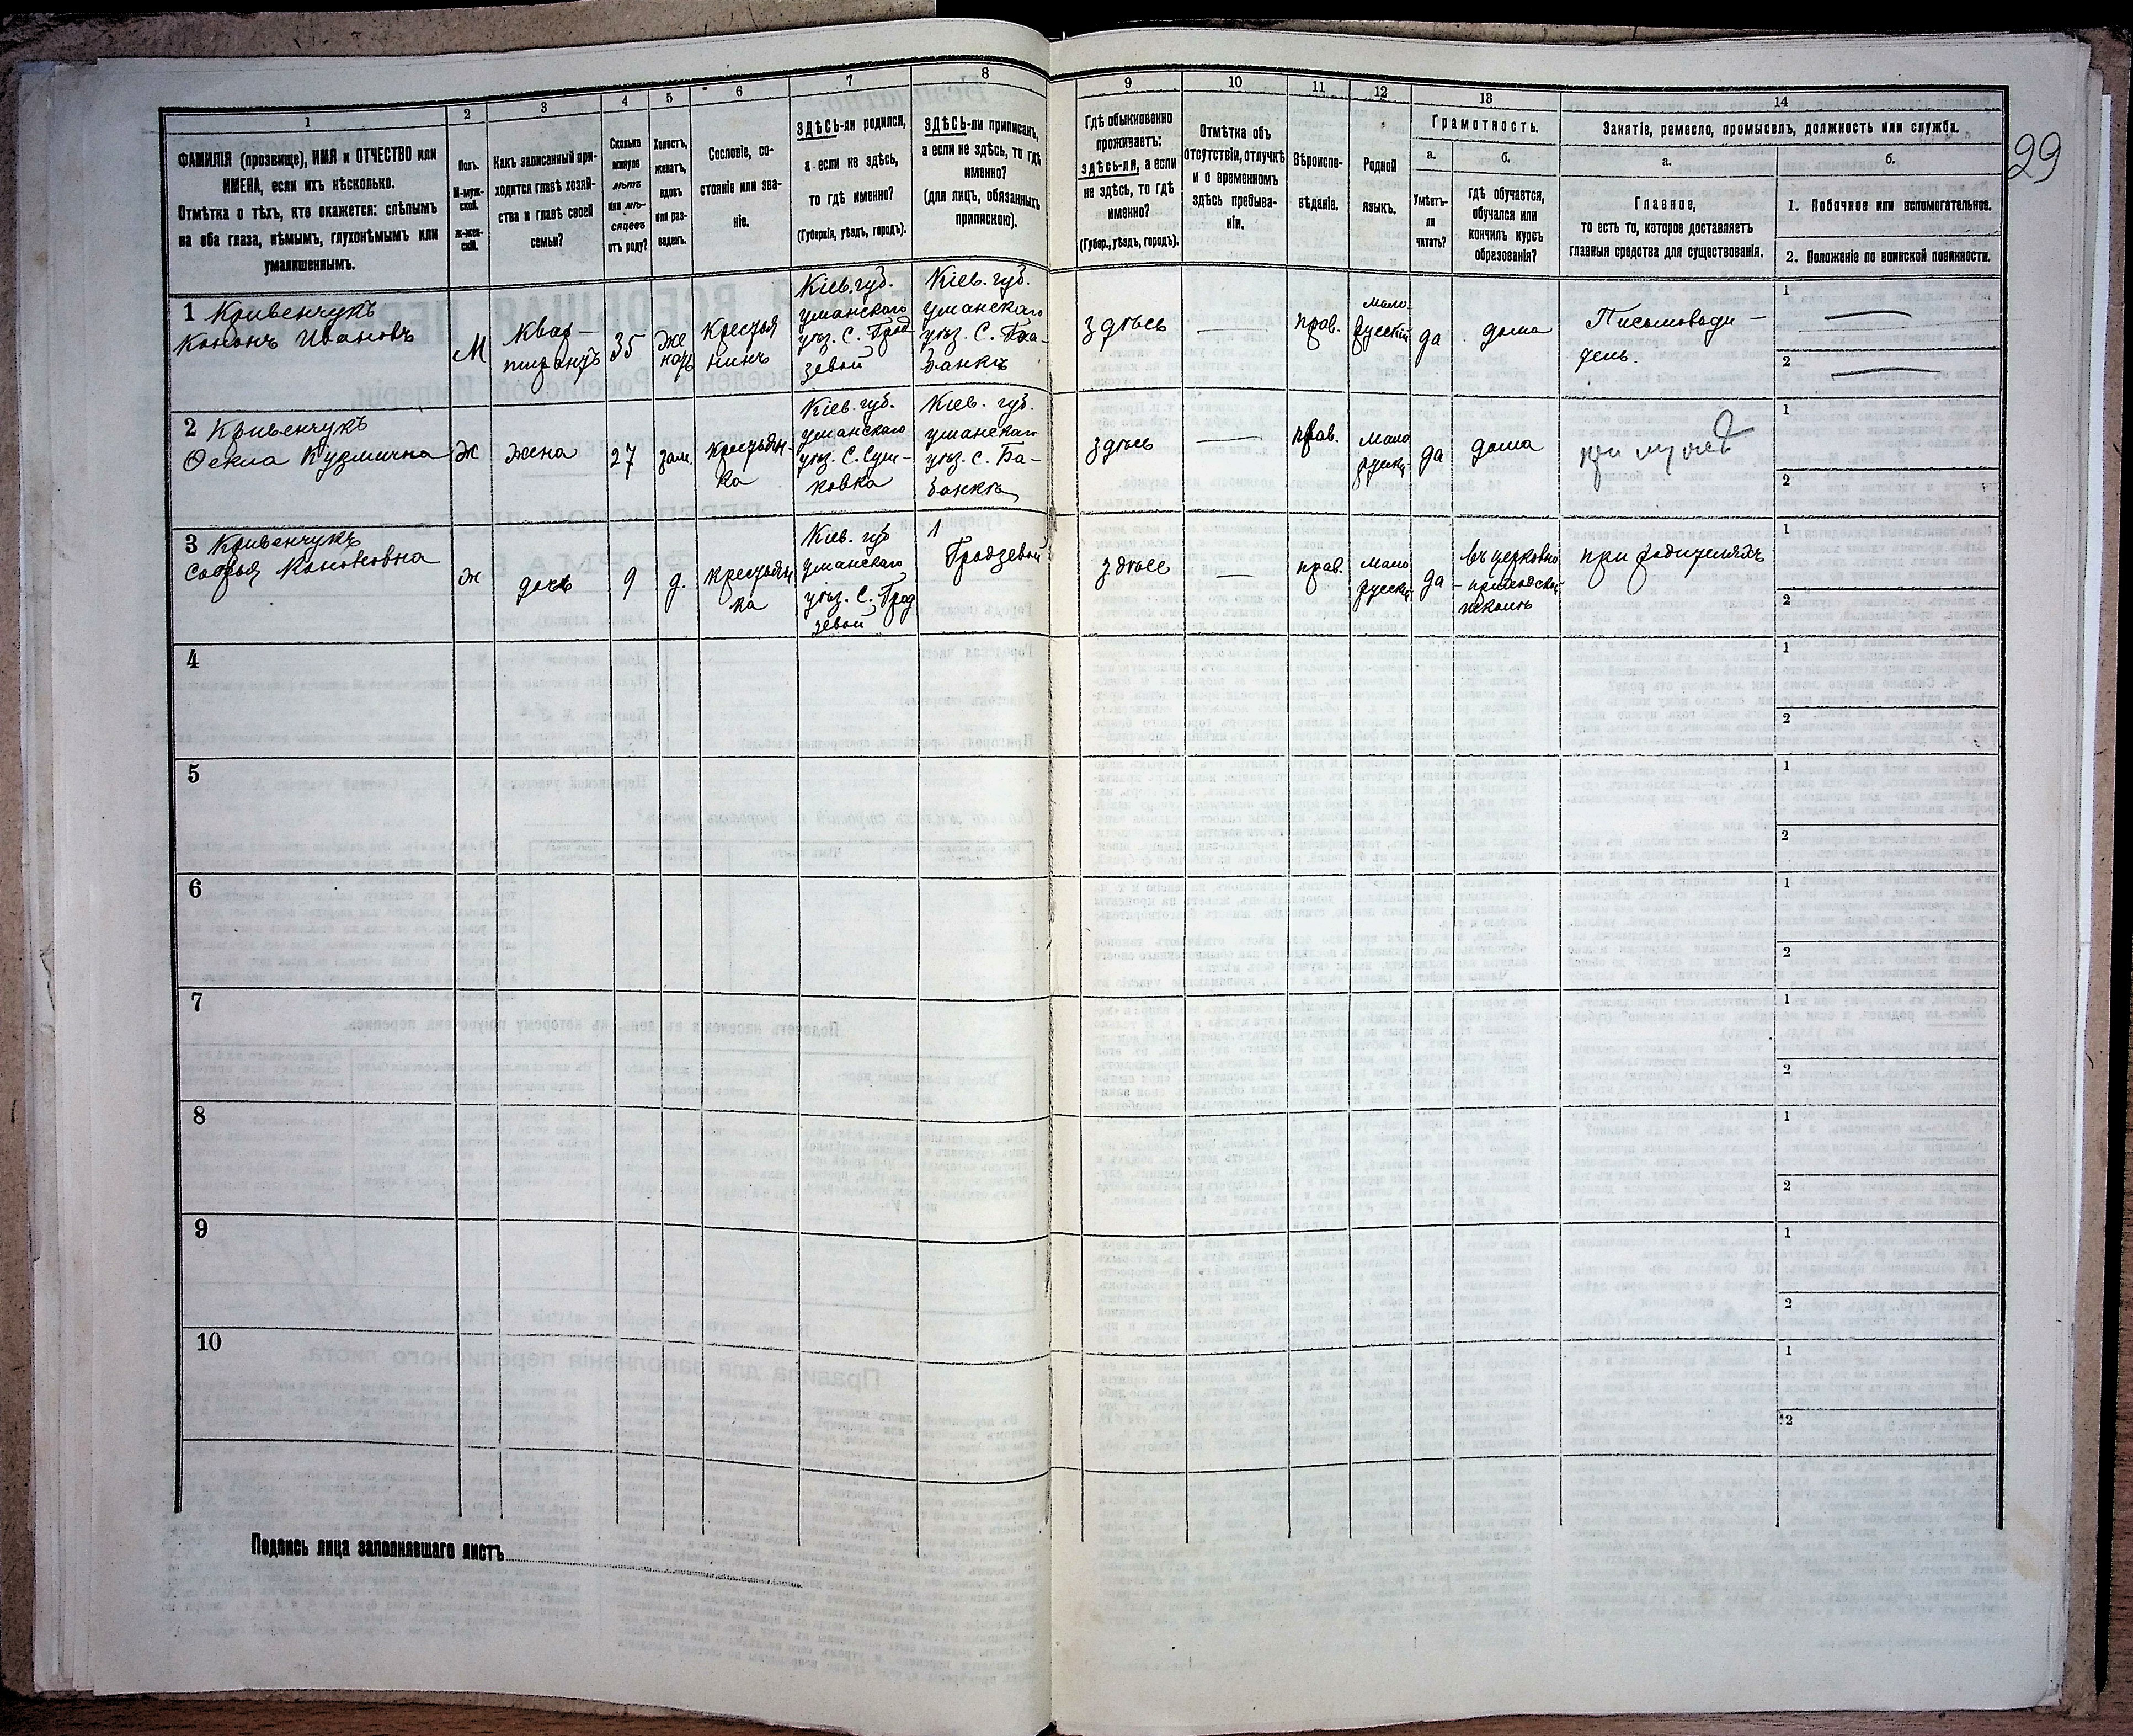 1
ФАМИЛІЯ (прозвище), ИМЯ и ОТЧЕСТВО или
ИМЕНА, если ихъ нѣсколько.
Отмѣтка о тѣхъ, кто окажется: слѣпымъ
на оба глаза, нѣмымъ, глухонѣмымъ или
умалишеннымъ.
2
Полъ.
М-муж-
ской.
Ж-жен-
скій.
3
Какъ записанный при-
ходится главѣ хозяй-
ства и главѣ своей
семьи?
4
Сколько
минуло
лѣтъ
или мѣ-
сяцевъ
отъ роду?
5
Холостъ,
женатъ,
вдовъ
или раз-
веденъ.
6
Сословіе, со-
стояніе или зва-
ніе.
7
ЗДѢСЬ-ли родился,
а если не здѣсь,
то гдѣ именно?
(Губернія, уѣздъ, городъ).
8
ЗДѢСЬ-ли приписанъ,
а если не здѣсь, то гдѣ
именно?
(для лицъ, обязанныхъ
припискою).
9
Гдѣ обыкновенно
проживаетъ:
здѣсь-ли, а если
не здѣсь, то гдѣ
именно?
(Губер., уѣздъ, городъ).
10
Отмѣтка объ
отсутствіи, отлучкѣ
и о временномъ
здѣсь пребыва-
ніи.
11
Вѣроиспо-
вѣданіе.
12
Родной
языкъ.
13
Грамотность.
а.
Умѣетъ-
ли
читать?
б.
гдѣ обучается,
обучался или
кончилъ курсъ
образованія?
14
Занятіе, ремесло, промыселъ, должность или служба.
а.
Главное,
то есть то, которое доставляетъ
главныя средства для существованія.
б.
1. Побочное или вспомогательное.
2. Положеніе по воинской повинности.
29
1 Кривенчукъ
Кононъ Ивановъ
М
Квар-
тирантъ
35
Же
натъ
Крестья
нинъ
Кіев. губ.
уманскаго
уѣз. С. Грод
зевой
Кіев. губ.
уманскаго
уѣз. С. Ба-
банкѣ
здѣсь
прав.
мало-
русскій
да
дома
Письмоводи-
тель.
1
2
2 Кривенчукъ
Оекла Кузмична
Ж
жена
27
зам.
крестьян-
ка
Кіев. губ.
уманскаго
уѣз. С. Суш-
ковка
Кіев. губ.
уманскаго
уѣз. С. Ба-
банкѣ
здѣсь
прав.
Мало
русскі
да
дома
при мужѣ
1
2
3 Кривенчукъ
Софья Кононовна
ж
дочь
9
д.
крестьян
ка
Кіев. губ
уманскаго
уѣз. С. Грод
зевой
Гродзевой
здѣсе
прав.
Мало
русскі
да
въ церковно
-приходской
школѣ
при родителяхъ
1
2
4
1
2
5
1
2
6
1
2
7
1
2
8
1
2
9
1
2
10
1
2
Подпись лица заполнявшаго листъ